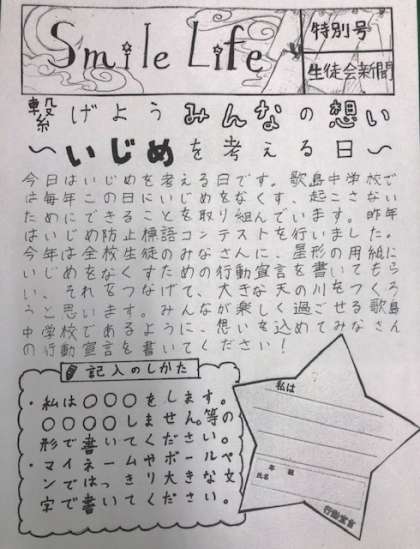 Smile Life
特別号
生徒会新聞
繋げよう みんなの想い
〜いじめを考える日〜
今日はいじめを考える日です。歌島中学校で
は毎年この日にいじめをなくす、起こさない
ためにできることを取り組んでいます。昨年
はいじめ防止標語コンテストを行いました。
今年は全校生徒のみなさんに、星形の用紙に
いじめをなくすための行動宣言を書いてもら
い、それをつなげて、大きな天の川をつくろ
うと思います。みんなが楽しく過ごせる歌島
中学校であるように、想いを込めてみなさん
の行動宣言を書いてください！
記入のしかた
・私は〇〇〇をします。
〇〇〇〇しません。等の
形で書いてください。
・マイネームやボールペ
ンではっきり大きな文
字で書いてください。
私は
年 組
氏名
行動宣言